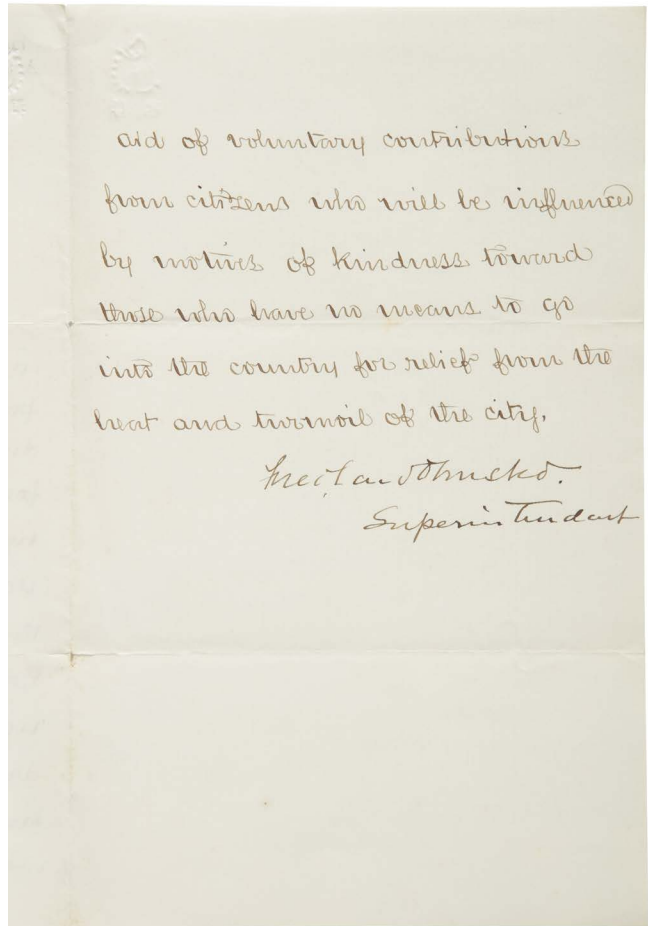 aid of voluntary contributions
from citizens who will be influenced
by motives of kindness toward
those who have no means to go
into the country for relief from the
heat and turmoil of the city.
Fred. Law Olmsted.
Superintendent